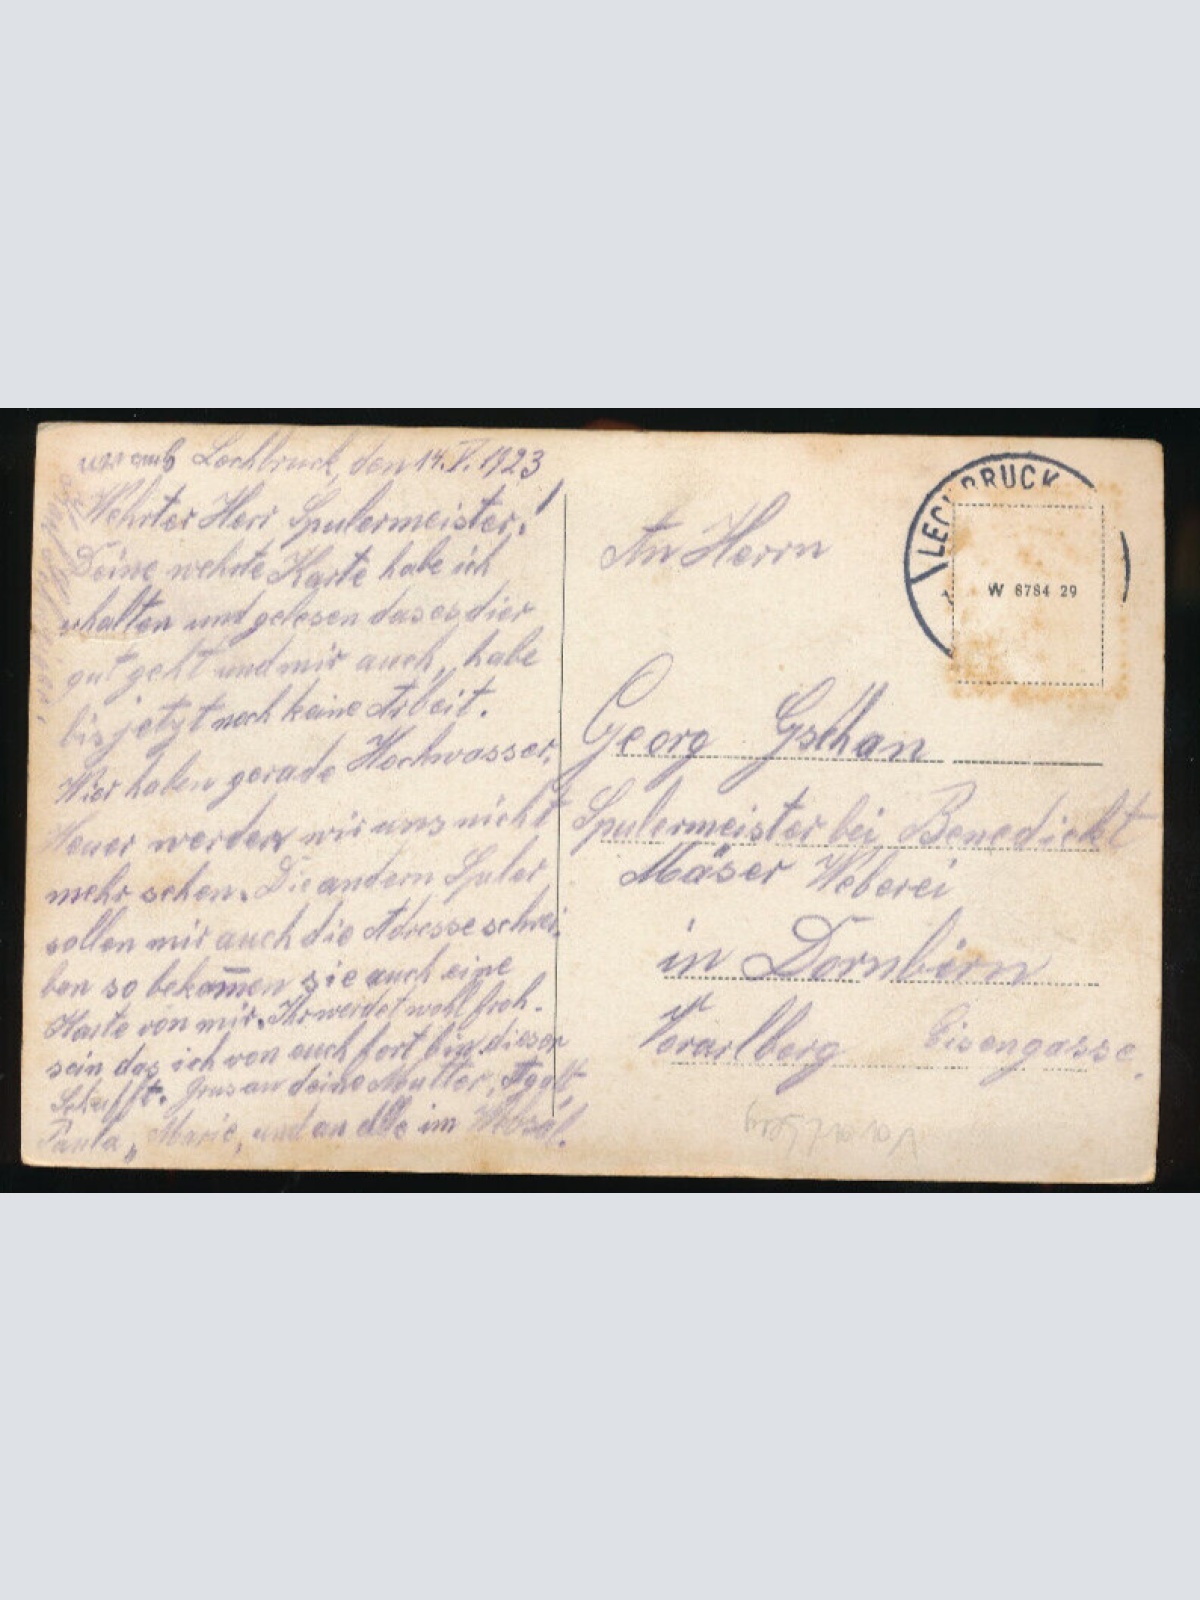 Lechbruck, den 14. V. 1923
Wehrter Herr Spulermeister!
Deine wehrte Karte habe ich
erhalten und gelesen das es dier
gut geht und mir auch, habe
bis jetzt noch keine Arbeit.
Wier haben gerade Hochwasser,
Heuer werden wir uns nicht
mehr sehen. Die andern Spuler
sollen mir auch die Adresse schrei
ben so bekom̅en sie auch eine
Karte von mir. Ihr werdet wohl froh
sein das ich von euch fort bin dieser
Grus an deine Mutter,
Paula, Marie, und an alle im Websal.
An Herrn
Georg Gsthan
Spulermeister bei Benedickt
Mäser Weberei
in Dornbirn
Vorarlberg Eisengasse.
LECHBRUCK
W 8784 29
Vorarlberg